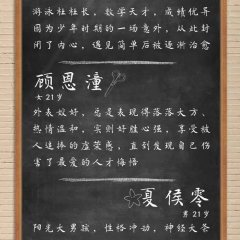 游泳社社长，数学天才，成绩优异
因为少年时期的一场意外，从此封
闭了内心，遇见简单后被逐渐治愈
顾恩潼
女 21岁
外表姣好，总是表现得落落大方、
热情温和，实则好胜心强，享受被
人追捧的虚荣感，直到发现自己伤
害了最爱的人才悔悟
夏侯零
男 21岁
阳光大男孩，性格冲动，神经大条